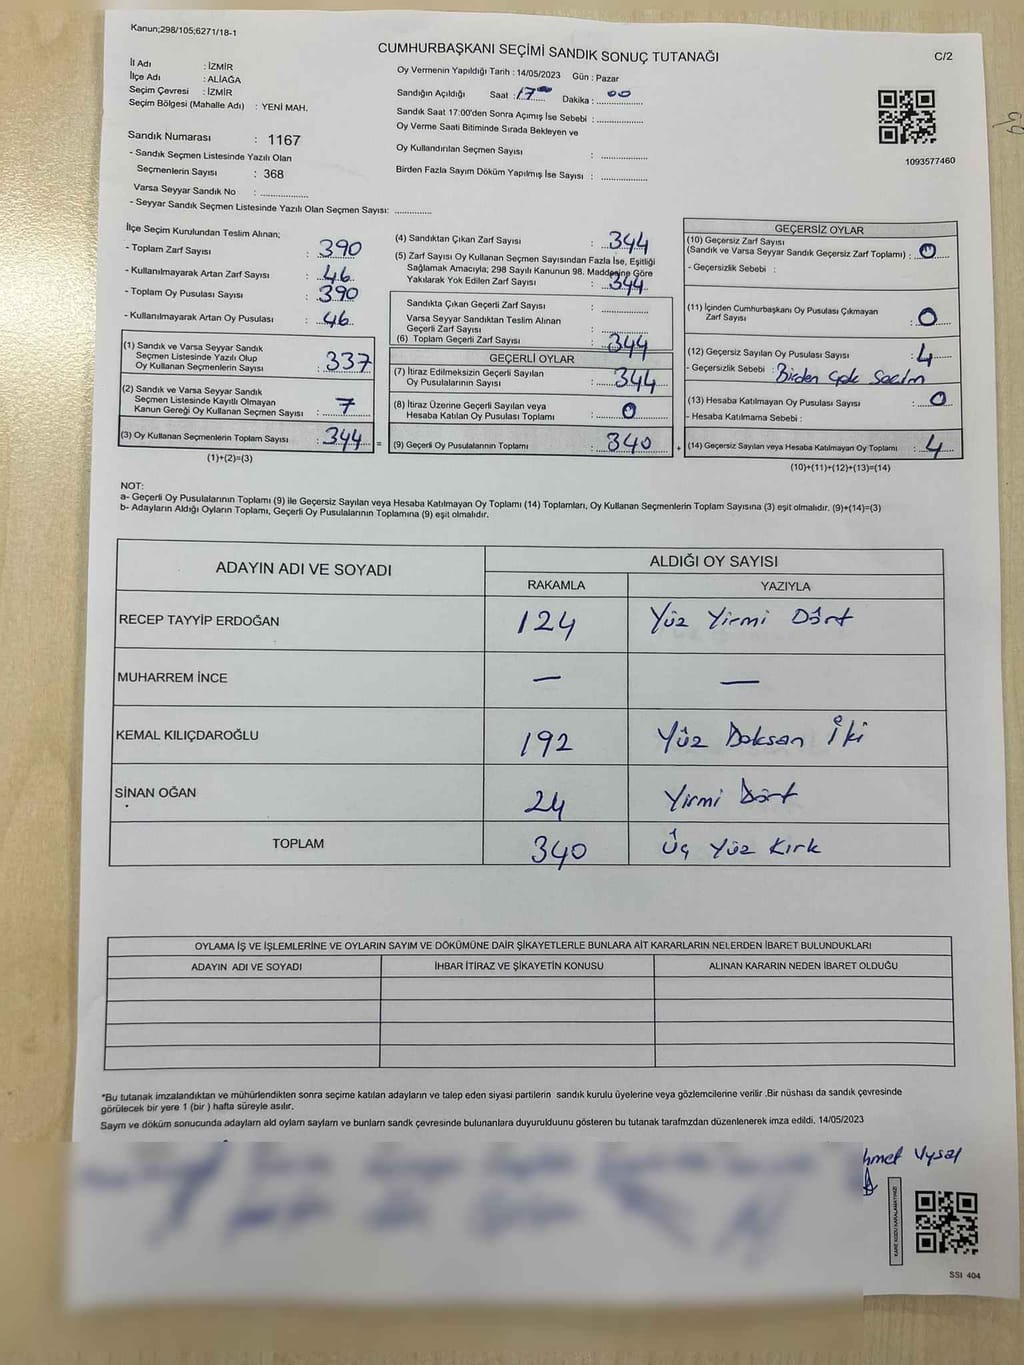 Kanun;298/105;6271/18-1
CUMHURBAŞKANI SEÇİMİ SANDIK SONUÇ TUTANAĞI
C/2
İl Adı : İZMİR
İlçe Adı : ALİAĞA
Seçim Çevresi : İZMİR
Seçim Bölgesi (Mahalle Adı) : YENİ MAH.
Sandık Numarası : 1167
- Sandık Seçmen Listesinde Yazılı Olan
Seçmenlerin Sayısı : 368
Varsa Seyyar Sandık No : ............
- Seyyar Sandık Seçmen Listesinde Yazılı Olan Seçmen Sayısı: ............
Oy Vermenin Yapıldığı Tarih : 14/05/2023 Gün : Pazar
Sandığın Açıldığı Saat : 17 00 Dakika : 00
Sandık Saat 17:00'den Sonra Açımış İse Sebebi : ............
Oy Verme Saati Bitiminde Sırada Bekleyen ve
Oy Kullandırılan Seçmen Sayısı : ............
Birden Fazla Sayım Döküm Yapılmış İse Sayısı : ............
1093577460
İlçe Seçim Kurulundan Teslim Alınan;
- Toplam Zarf Sayısı : 390
- Kullanılmayarak Artan Zarf Sayısı : 46
- Toplam Oy Pusulası Sayısı : 390
- Kullanılmayarak Artan Oy Pusulası : 46
(1) Sandık ve Varsa Seyyar Sandık
Seçmen Listesinde Yazılı Olup
Oy Kullanan Seçmenlerin Sayısı : 337
(2) Sandık ve Varsa Seyyar Sandık
Seçmen Listesinde Kayıtlı Olmayan
Kanun Gereği Oy Kullanan Seçmen Sayısı : 7
(3) Oy Kullanan Seçmenlerin Toplam Sayısı : 344 =
(1)+(2)=(3)
(4) Sandıktan Çıkan Zarf Sayısı : 344
(5) Zarf Sayısı Oy Kullanan Seçmen Sayısından Fazla İse, Eşitliği
Sağlamak Amacıyla; 298 Sayılı Kanunun 98. Maddesine Göre
Yakılarak Yok Edilen Zarf Sayısı : 344
Sandıkta Çıkan Geçerli Zarf Sayısı : ............
Varsa Seyyar Sandıktan Teslim Alınan
Geçerli Zarf Sayısı : ............
(6) Toplam Geçerli Zarf Sayısı : 344
GEÇERLİ OYLAR
(7) İtiraz Edilmeksizin Geçerli Sayılan
Oy Pusulalarının Sayısı : 344
(8) İtiraz Üzerine Geçerli Sayılan veya
Hesaba Katılan Oy Pusulası Toplamı : 0
(9) Geçerli Oy Pusulalarının Toplamı : 340 +
GEÇERSİZ OYLAR
(10) Geçersiz Zarf Sayısı
(Sandık ve Varsa Seyyar Sandık Geçersiz Zarf Toplamı) : 0
- Geçersizlik Sebebi :
(11) İçinden Cumhurbaşkanı Oy Pusulası Çıkmayan
Zarf Sayısı : 0
(12) Geçersiz Sayılan Oy Pusulası Sayısı : 4
- Geçersizlik Sebebi : Birden Çok Seçim
(13) Hesaba Katılmayan Oy Pusulası Sayısı : 0
- Hesaba Katılmama Sebebi :
(14) Geçersiz Sayılan veya Hesaba Katılmayan Oy Toplamı : 4
(10)+(11)+(12)+(13)=(14)
NOT:
a- Geçerli Oy Pusulalarının Toplamı (9) ile Geçersiz Sayılan veya Hesaba Katılmayan Oy Toplamı (14) Toplamları, Oy Kullanan Seçmenlerin Toplam Sayısına (3) eşit olmalıdır. (9)+(14)=(3)
b- Adayların Aldığı Oyların Toplamı, Geçerli Oy Pusulalarının Toplamına (9) eşit olmalıdır.
ADAYIN ADI VE SOYADI
ALDIĞI OY SAYISI
RAKAMLA YAZIYLA
RECEP TAYYİP ERDOĞAN 124 Yüz Yirmi Dört
MUHARREM İNCE — —
KEMAL KILIÇDAROĞLU 192 Yüz Doksan İki
SİNAN OĞAN 24 Yirmi Dört
TOPLAM 340 Üç Yüz Kırk
OYLAMA İŞ VE İŞLEMLERİNE VE OYLARIN SAYIM VE DÖKÜMÜNE DAİR ŞİKAYETLERLE BUNLARA AİT KARARLARIN NELERDEN İBARET BULUNDUKLARI
ADAYIN ADI VE SOYADI İHBAR İTİRAZ VE ŞİKAYETİN KONUSU ALINAN KARARIN NEDEN İBARET OLDUĞU
*Bu tutanak imzalandıktan ve mühürlendikten sonra seçime katılan adayların ve talep eden siyasi partilerin sandık kurulu üyelerine veya gözlemcilerine verilir .Bir nüshası da sandık çevresinde
görülecek bir yere 1 (bir ) hafta süreyle asılır.
Saym ve döküm sonucunda adaylarn ald oylarn saylarn ve bunlarn sandk çevresinde bulunanlara duyurulduunu gösteren bu tutanak tarafmzdan düzenlenerek imza edildi. 14/05/2023
hmet Uysal
KARE KODU KARALAMAYINIZ!
SSI 404